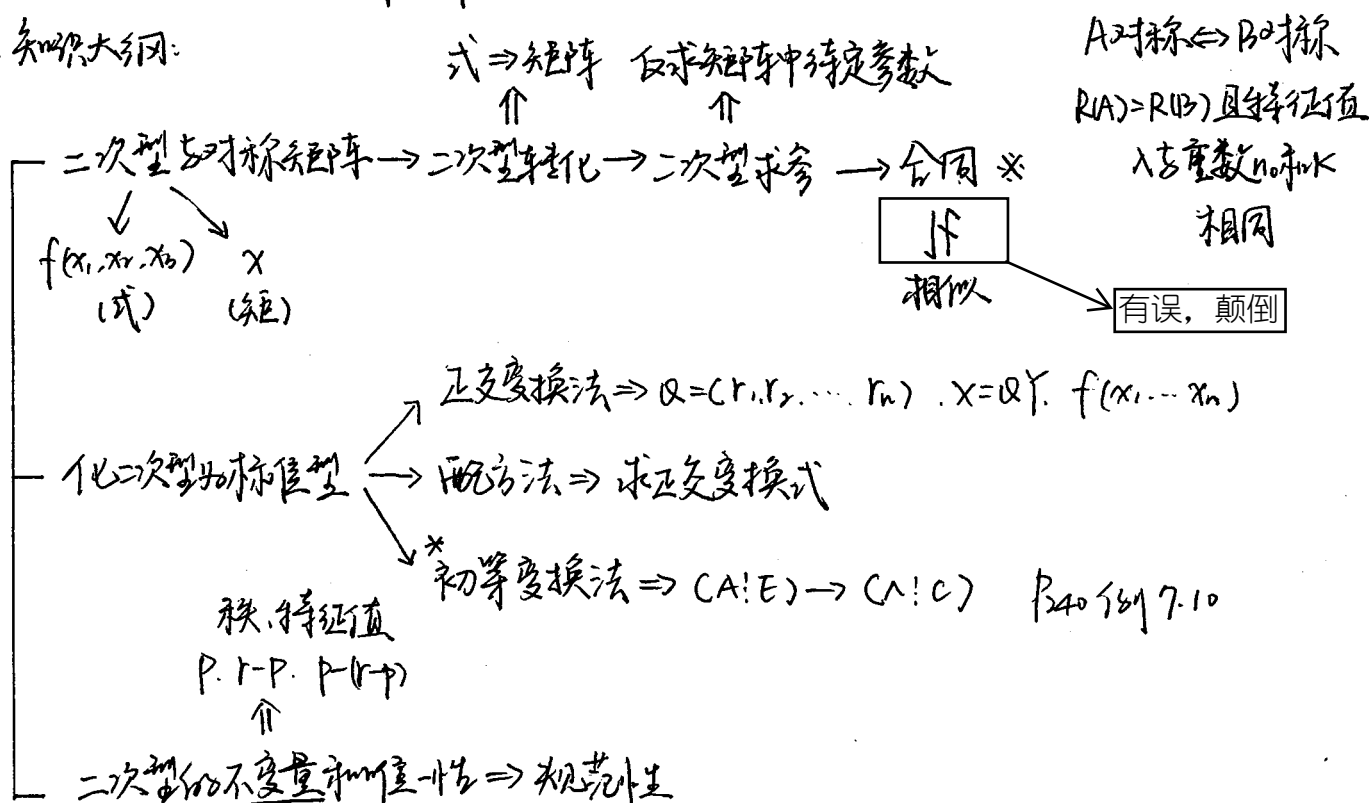 知识大纲:
式⇒矩阵 反求矩阵中待定参数
A对称⇔B对称
R(A)=R(B)且特征值
λ与重数n。和K
相同
二次型与对称矩阵→二次型转化→二次型求参→合同※
f(x₁,x₂,x₃) x
(式) (矩)
相似
有误，颠倒
正交变换法⇒Q=(r₁,r₂,…,rₙ).X=QY. f(x₁…xₙ)
化二次型为标准型
配方法⇒求正交变换式
*初等变换法⇒(A¦E)→(Λ¦C) P240例7.10
秩、特征值
P. r-P. P-(r-p)
二次型的不变量和唯一性⇒规范性